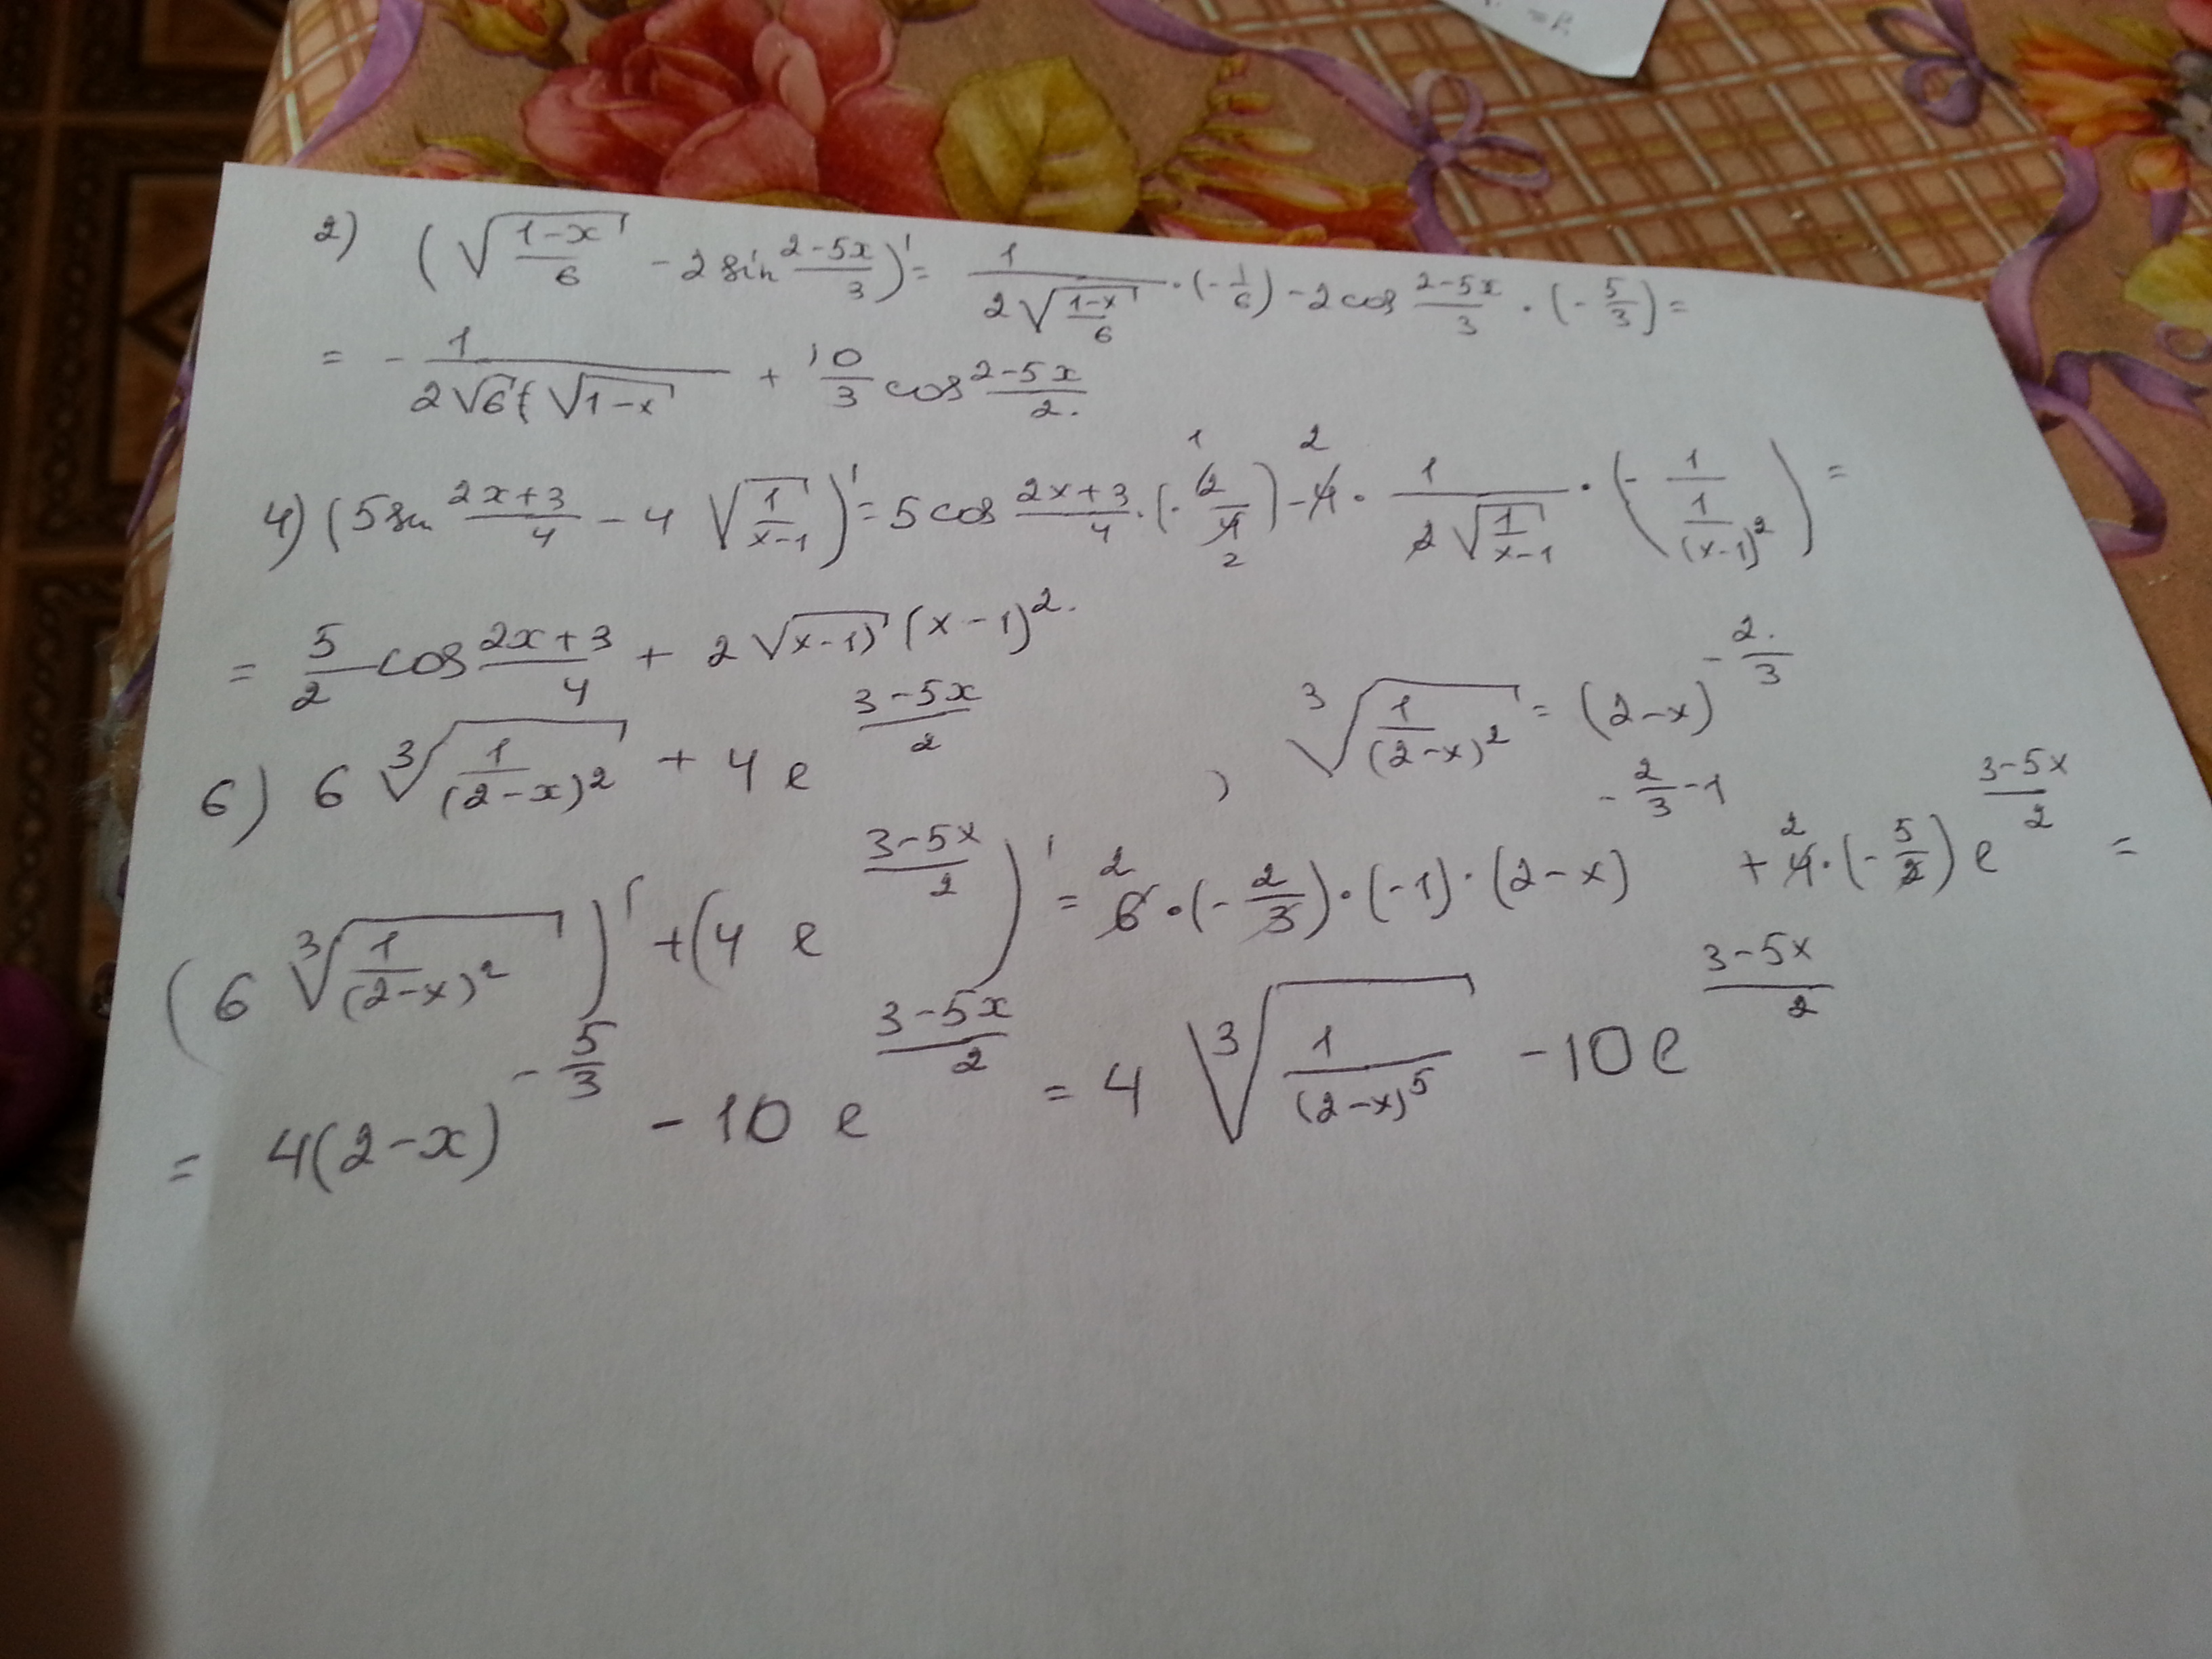 2) (√((1-x)/6) - 2 sin (2-5x)/3)' = 1/(2√((1-x)/6)) · (-1/6) - 2 cos (2-5x)/3 · (-5/3) =
= - 1/(2√6 √(1-x)) + 10/3 cos (2-5x)/2.
4) (5 sin (2x+3)/4 - 4 √(1/(x-1)))' = 5 cos (2x+3)/4 · (- 2/4) - 4 · 1/(2√(1/(x-1))) · (- 1/(1/(x-1)²)) =
= 5/2 cos (2x+3)/4 + 2 √(x-1) (x-1)².
6) 6 ∛(1/(2-x)²) + 4 e^((3-5x)/2) , ∛(1/(2-x)²) = (2-x)^(-2/3)
(6 ∛(1/(2-x)²))' + (4 e^((3-5x)/2))' = 6 · (-2/3) · (-1) · (2-x)^(-2/3-1) + 4 · (-5/2) e^((3-5x)/2) =
= 4(2-x)^(-5/3) - 10 e^((3-5x)/2) = 4 ∛(1/(2-x)⁵) - 10 e^((3-5x)/2)